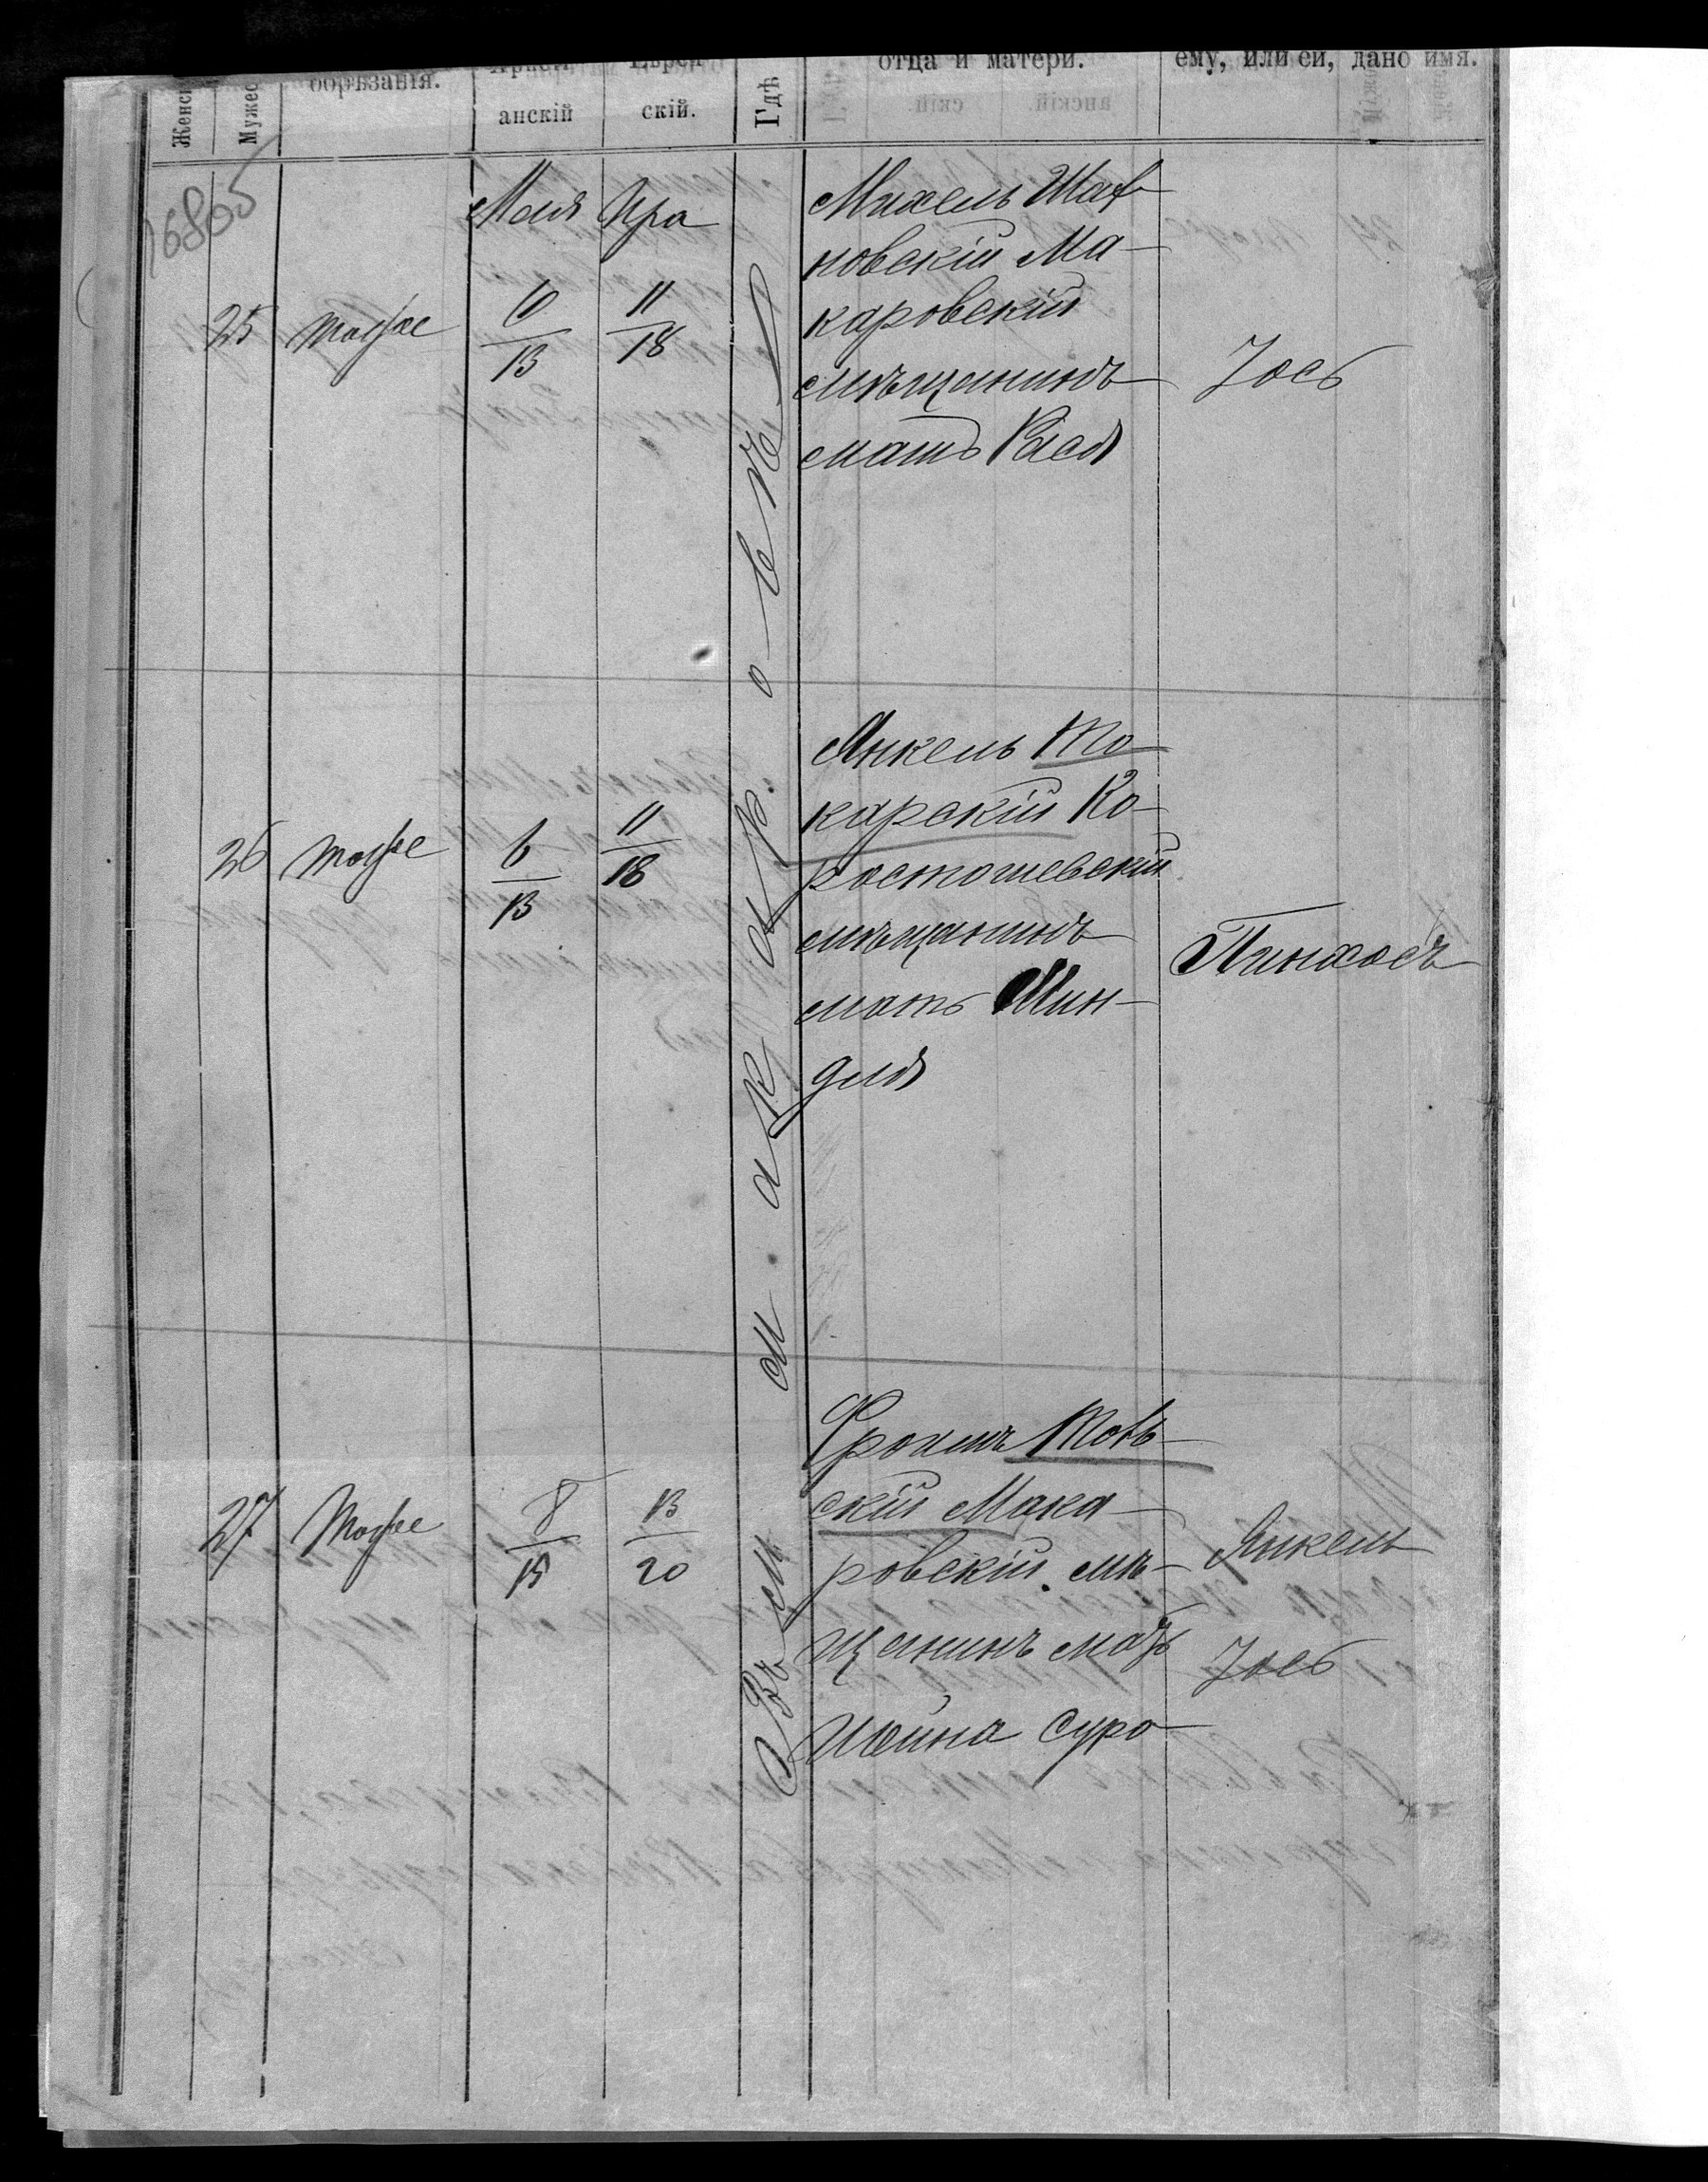 Женск
Мужес
обрѣзанія.
Христі
анскій
Еврей
скій.
Гдѣ
отца и матери.
ему, или ей, дано имя.
16805
Мая Ира
25 тотже 6/13 11/18
Михель Шаф-
новскій Ма-
каровскій
мѣщанинъ
мать Рася
Іось
26 тотже 6/13 11/18
Янкель То-
карскій Ко-
ростошевскій
мѣщанинъ
мать Мин-
для
Пинхосъ
27 Тотже 8/15 13/20
Фроимъ Товь-
скій Мака-
ровскій мѣ-
щанинъ мать
Шейна Сура
Янкель
Іось
Въ м. Макаровѣ